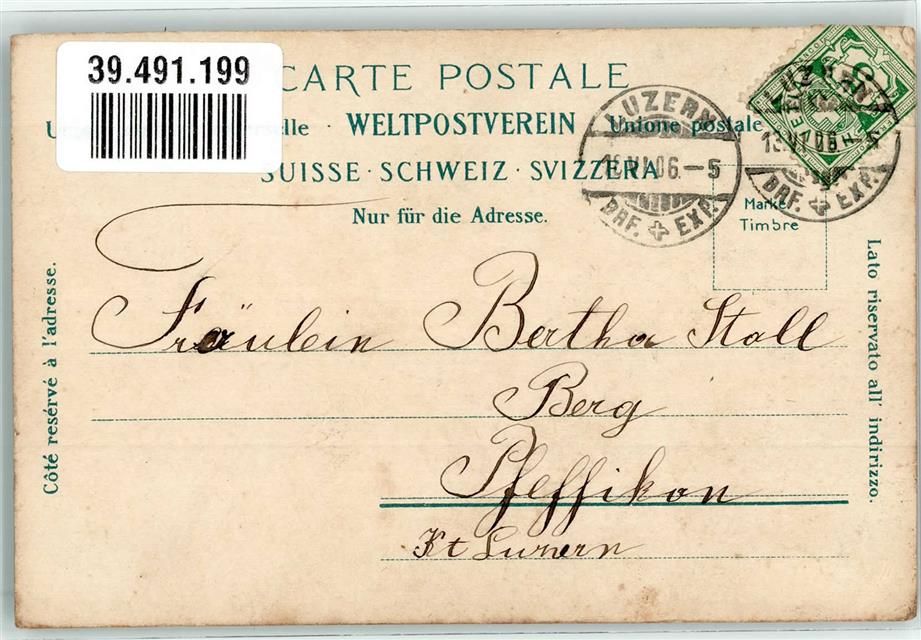 39.491.199
CARTE POSTALE
WELTPOSTVEREIN Unione postale
SUISSE · SCHWEIZ · SVIZZERA
Nur für die Adresse.
LUZERN
VI.06.–5
BRF. EXP.
LUZERN
13.VI.06.–5
BRF. EXP.
Marke
Timbre
Côté resérvé à l'adresse.
Lato riservato all' indirizzo.
Fräulein Bertha Stoll
Berg
Pfeffikon
Kt Luzern